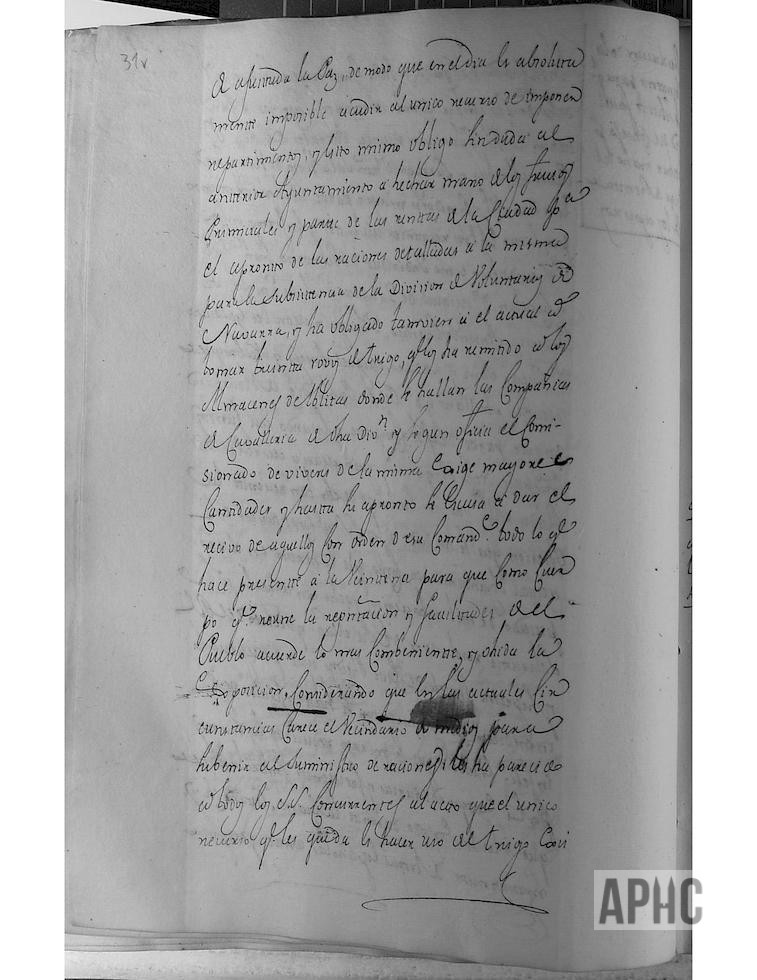 31v
de ajustada la Paz, de modo que en el dia es absoluta
mente imposible acudir al unico recurso de imponer
repartimentos, y esto mismo obligo sin duda al
anterior Ayuntamiento a hechar mano de los
y parte de las rentas de la Ciudad pa
el apronto de las raciones detalladas a la misma
para la subsistencia de la Division de Voluntarios de
Navarra, y ha obligado tamvien a el actual a
tomar treinta rovos de trigo, qe los ha remitido a los
Almacenes de Ablitas donde se hallan las Compañias
de Cavalleria de dha Divn y segun oficia el Comi-
sionado de viveres de la misma exige mayores
Cantidades y hasta su apronto se escusa a dar el
recivo de aquellos con orden de su Comandte todo lo qe
hace presente a la Veintena para que como Cuer
po qe reune la reprtacion y facultades del
Pueblo acuerde lo mas combeniente, y ohida la
Exposicion, Considerando que en las actuales Cir
cunstancias Carece el Vecindario de medios para
subenir al suministro de raciones les ha parecido
a todos los SS. Concurrentes al acto que el unico
recurso qe les queda es hacer uso del trigo
APHC